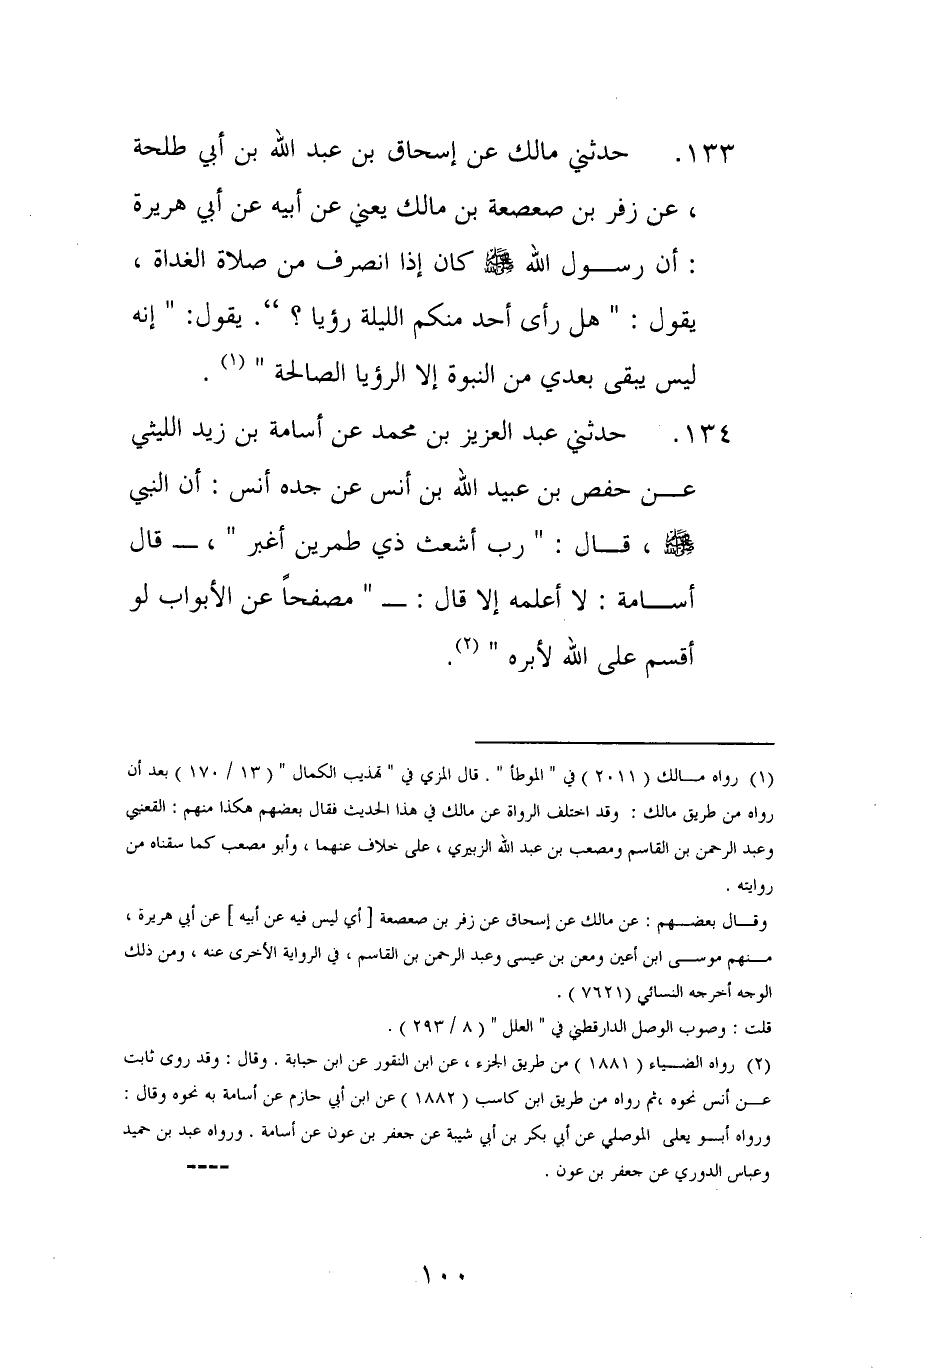 ١٣٣. حدثني مالك عن إسحاق بن عبد الله بن أبي طلحة
، عن زفر بن صعصعة بن مالك يعني عن أبيه عن أبي هريرة
: أن رسـول الله ﷺ كان إذا انصرف من صلاة الغداة ،
يقول : " هل رأى أحد منكم الليلة رؤيا ؟ “. يقول: " إنه
ليس يبقى بعدي من النبوة إلا الرؤيا الصالحة " (١) .
١٣٤. حدثني عبد العزيز بن محمد عن أسامة بن زيد الليثي
عـن حفص بن عبيد الله بن أنس عن جده أنس : أن النبي
ﷺ ، قـال : " رب أشعث ذي طمرين أغبر " ، ــ قال
أسـامة : لا أعلمه إلا قال : ــ " مصفحاً عن الأبواب لو
أقسم على الله لأبره " (٢).
(١) رواه مـالك ( ٢٠١١ ) في " الموطأ " . قال المزي في " تهذيب الكمال " ( ١٣ / ١٧٠ ) بعد أن
رواه من طريق مالك : وقد اختلف الرواة عن مالك في هذا الحديث فقال بعضهم هكذا منهم : القعنبي
وعبد الرحمن بن القاسم ومصعب بن عبد الله الزبيري ، على خلاف عنهما ، وأبو مصعب كما سقناه من
روايته .
وقـال بعضـهم : عن مالك عن إسحاق عن زفر بن صعصعة [ أي ليس فيه عن أبيه ] عن أبي هريرة ،
مـنهم موسـى ابن أعين ومعن بن عيسى وعبد الرحمن بن القاسم ، في الرواية الأخرى عنه ، ومن ذلك
الوجه أخرجه النسائي (٧٦٢١ ) .
قلت : وصوب الوصل الدارقطني في " العلل " ( ٨ / ٢٩٣ ) .
(٢) رواه الضـياء ( ١٨٨١ ) من طريق الجزء ، عن ابن النقور عن ابن حبابة . وقال : وقد روى ثابت
عـن أنس نحوه ،ثم رواه من طريق ابن كاسب ( ١٨٨٢ ) عن ابن أبي حازم عن أسامة به نحوه وقال :
ورواه أبـو يعلى الموصلي عن أبي بكر بن أبي شيبة عن جعفر بن عون عن أسامة . ورواه عبد بن حميد
وعباس الدوري عن جعفر بن عون . ----
١٠٠